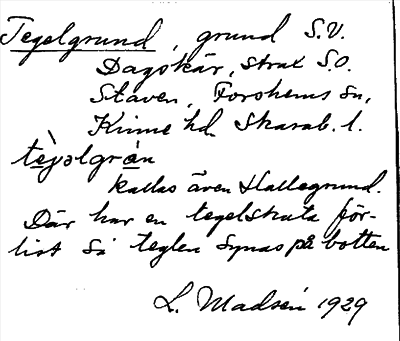 Tegelgrund, grund S.V.
Dagskär, strax S.O.
Staven, Forshems sn,
Kinne hd. Skarab. l.
tèȷəlgrɑn
kallas även Hallegrund.
Där har en tegelskuta för-
list så teglen synas på botten
L. Madsén 1929